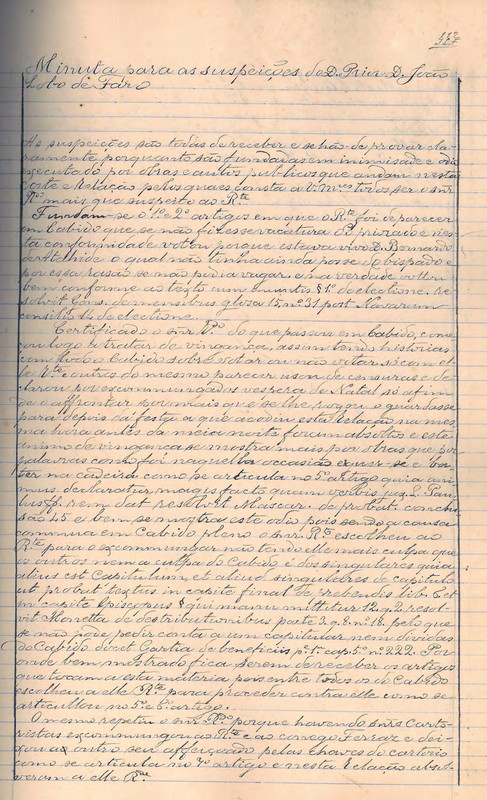 117
Minuta para as suspeições do D. Prior D. João
Lobo de Fáro
As suspeições são todas de receber e se hão de provar cla-
ramente porquanto são fundadas em inimisade e odio
executado por obras e autos publicos que andam nesta
corte e Relação pelos quaes consta a V. Mces todos ser o snr
Rdo mais que suspeito ao Rte
Fundam-se o 1º e 2º artigos em que o Rte foi de parecer
em Cabido que se não fizesse vacatura
conformidade votou porque estava vivo D. Bernardo
de Athaide o qual não tinha ainda posse do bispado e
por essa rasão se não podia vagar e na verdade votou
bem conforme ao texto cum in cunctis § 1º de electione. re-
solvit Gons. de mensibus glosa 15 nº 31 post Navarum
consilio 14 de electione.
Certificado o snr Rdo do que passou em Cabido, come-
çou logo a tratar de vingança, assim tendo historias
com todo o Cabido sobre votar ou não votar só com el-
le Rte e outros do mesmo parecer usou de censuras e de-
clarou por excommungados vespera de Natal só a fim
de o affrontar por mais que se lhe rogou o guardasse
para depois da festa a que acodiu esta Relação na mes-
ma hora antes da meia noite foram absoltos e este
animo de vingança se mostra mais por obras que por
palavras como foi naquella occasião
ter na cadeira como se articula no 5º artigo quia ani-
mus declaratur magis facto quam verbis
rem dat resolvit Mascar. de probat. conclu-
são 45 e bem se mostra este odio pois sendo a causa
commua em Cabido pleno o snr. Rdo escolheu ao
Rte para o excommungar não tendo elle mais culpa que
os outros nem a culpa do Cabido é dos singulares quia
aliud est Capitulum et aliud singulares de capitulo
ut probat textus in capite final de
capite Episcopus § qui manu mittitur 12 q. 2 resol-
vit Monetta de destributionibus parte 2 q. 8 nº 18. pelo que
se não póde pedir conta a um capitular nem dividas
do Cabido dicit Garcia de beneficiis pe 1ª cap. 5 nº 222. Por
onde bem mostrado fica serem de receber os artigos
que tocam a esta materia pois entre todos os do Cabido
escolheu a elle Rte para proceder contra elle como se
articullou no 5º e 6º artigo.
O mesmo repetiu o snr Rdo porque havendo snrs Carto-
ristas excommungou ao Rte e ao conego Ferraz e dei-
xou ao outro seu affeiçoado pelas chaves do cartorio
como se articula no 7º artigo e nesta Relação absol-
veram a elle Rte